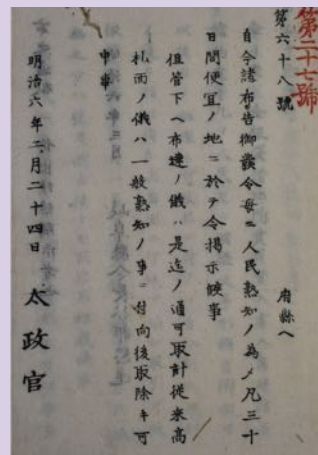 第二十七號
第六十八號
府縣へ
自今諸布告御發令毎ニ人民熟知ノ為メ凡三十
日間便宜ノ地ニ於テ令掲示候事
但管下ヘ布達ノ儀ハ是迄ノ通可取計從来高
札面ノ儀ハ一般熟知ノ事ニ付向後取除キ可
申事
明治六年二月二十四日 太政官